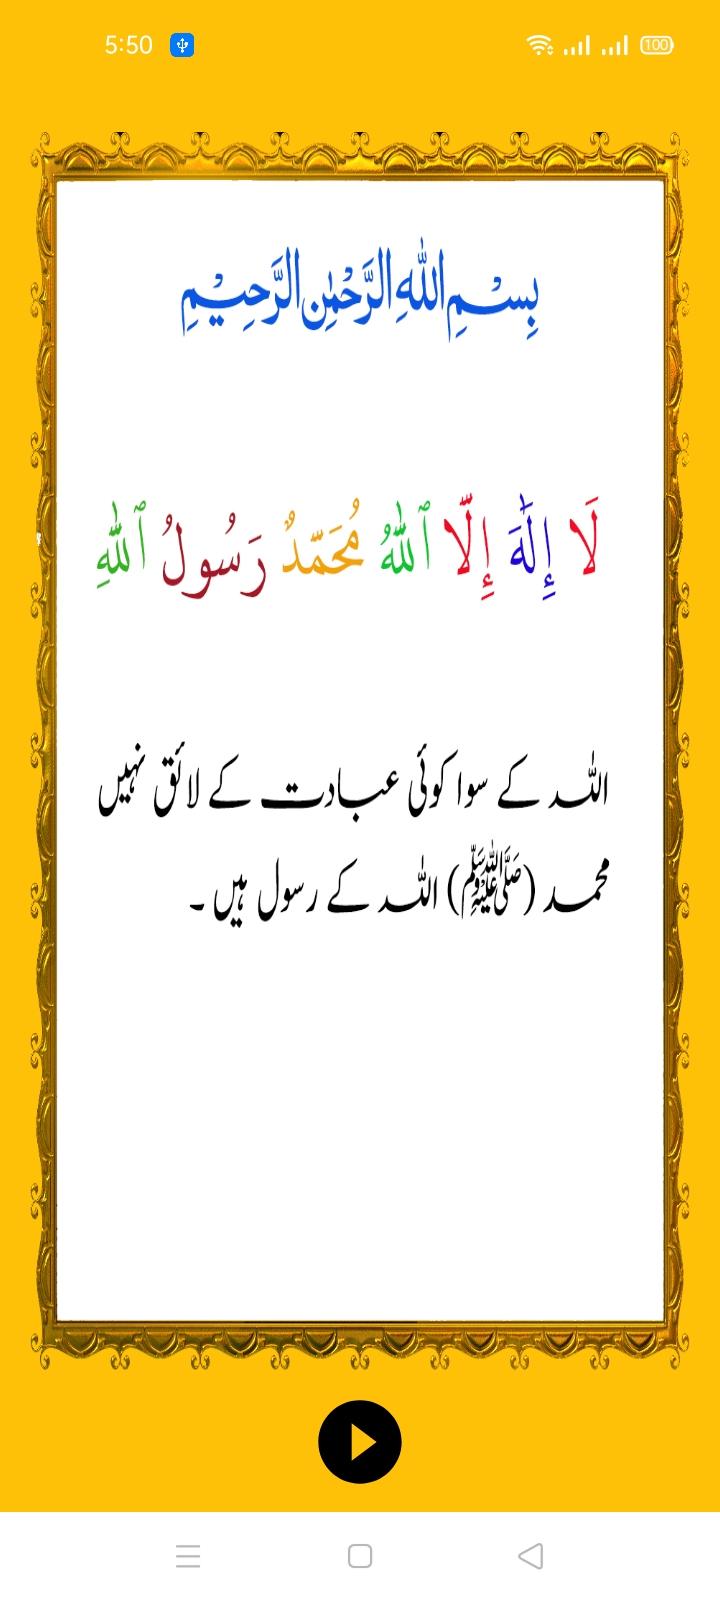 5:50
100
بِسْمِ اللهِ الرَّحْمٰنِ الرَّحِيْمِ
لَا إِلَٰهَ إِلَّا ٱللَّٰهُ مُحَمَّدٌ رَسُولُ ٱللَّٰهِ
اللہ کے سوا کوئی عبادت کے لائق نہیں
محمد (ﷺ) اللہ کے رسول ہیں ۔